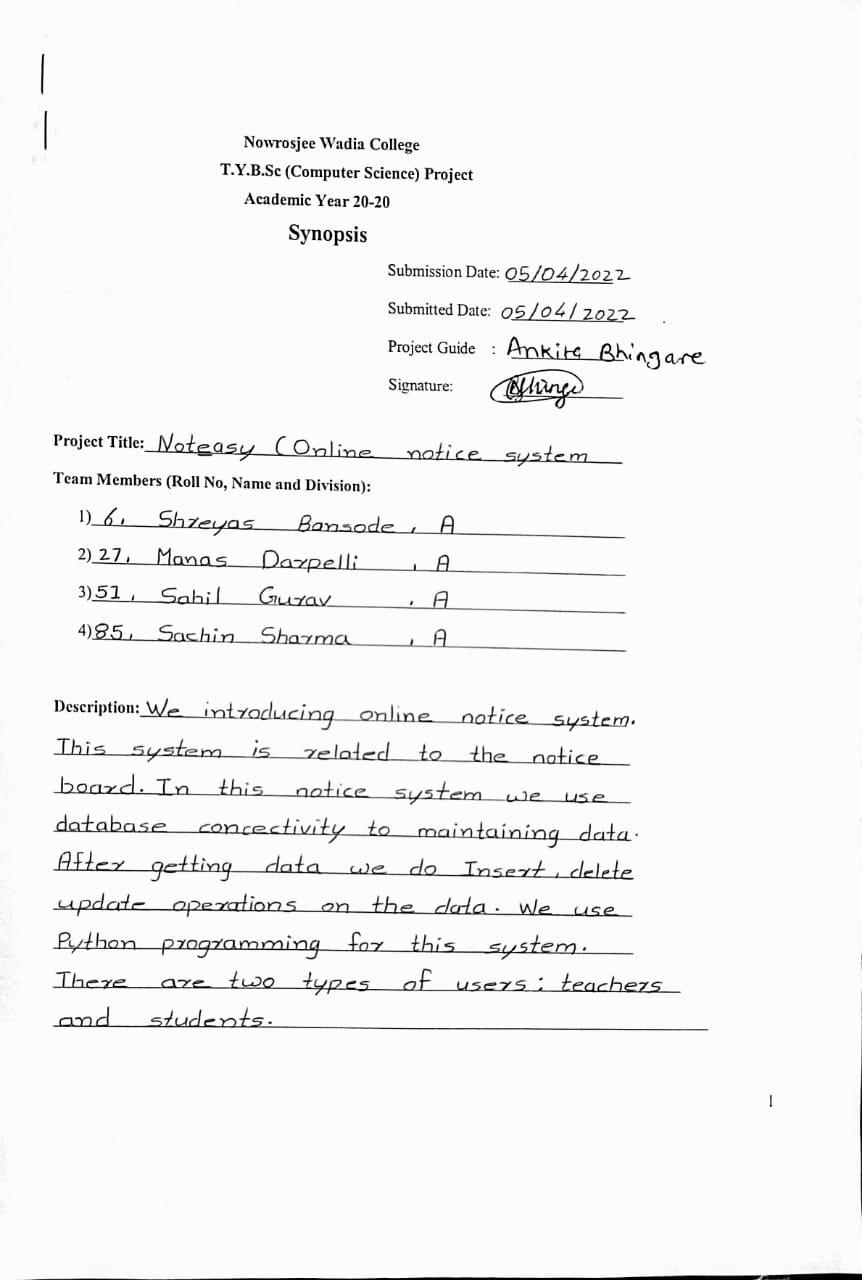 Nowrosjee Wadia College
T.Y.B.Sc (Computer Science) Project
Academic Year 20-20
Synopsis
Submission Date: 05/04/2022
Submitted Date: 05/04/2022
Project Guide : Ankita Bhingare
Signature:
Project Title: Noteasy (Online notice system
Team Members (Roll No, Name and Division):
1) 6, Shreyas Bansode, A
2) 27, Manas Darpelli, A
3) 51, Sahil Gurav, A
4) 85, Sachin Sharma, A
Description: We introducing online notice system.
This system is related to the notice
board. In this notice system we use
database concectivity to maintaining data.
After getting data we do Insert, delete
update operations on the data. We use
Python programming for this system.
There are two types of users: teachers
and students.
1